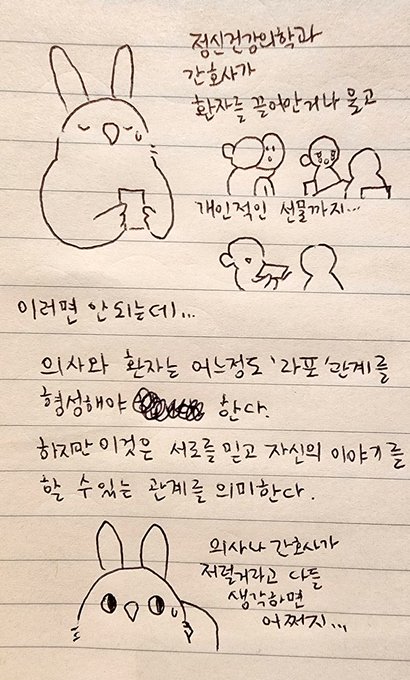 정신건강의학과
간호사가
환자를 끌어안거나 울고
개인적인 선물까지...
이러면 안되는데...
의사와 환자는 어느정도 '라포'관계를
형성해야 한다.
하지만 이것은 서로를 믿고 자신의 이야기를
할 수 있는 관계를 의미한다.
의사나 간호사가
저럴거라고 다들
생각하면
어쩌지...